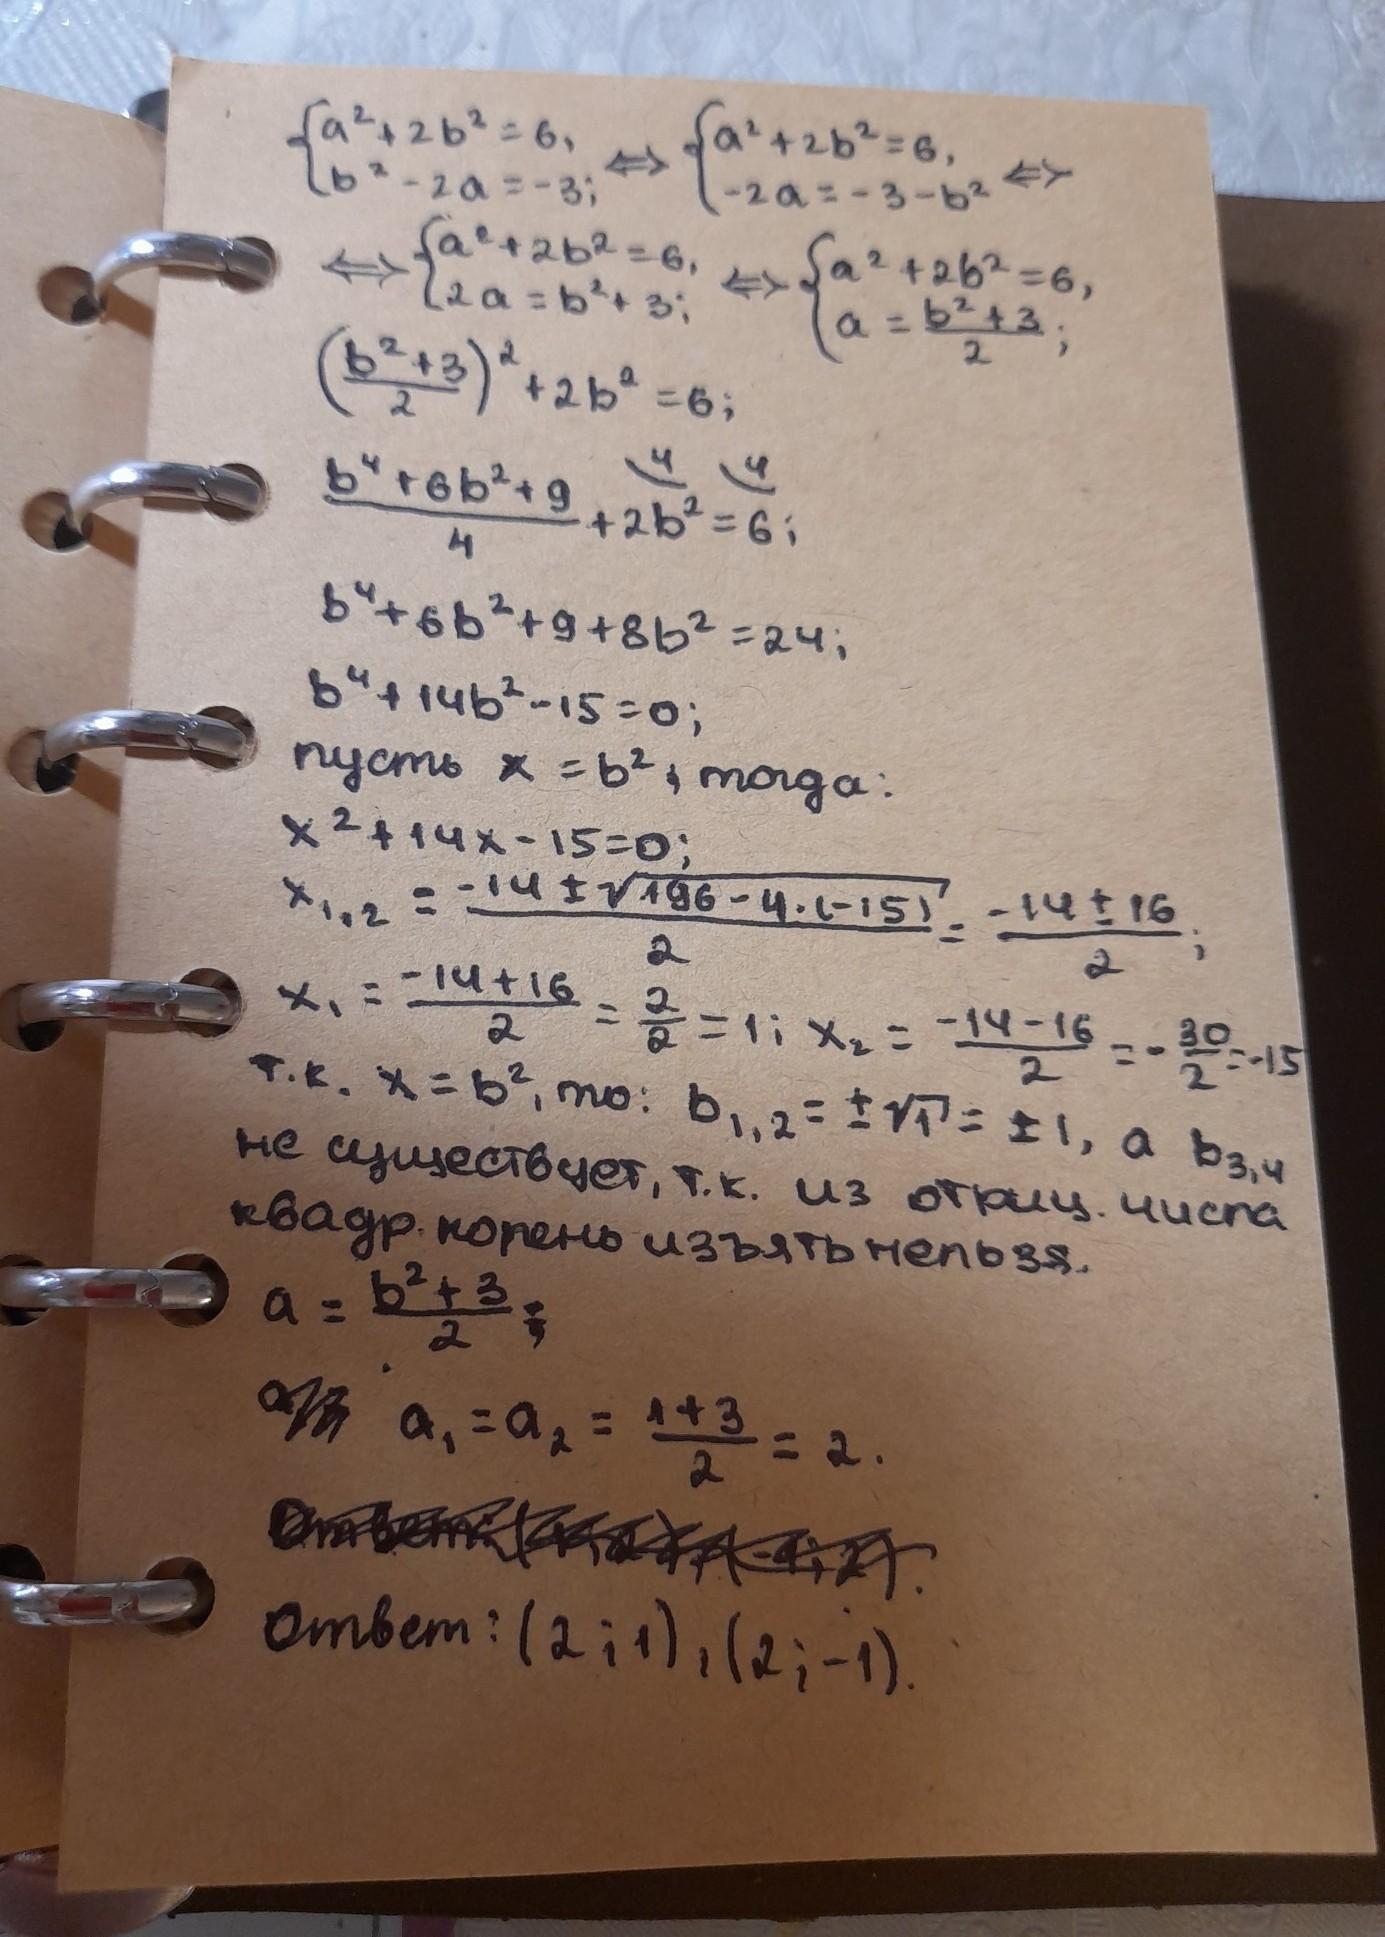 {a² + 2b² = 6, b² - 2a = -3; ⇔ {a² + 2b² = 6, -2a = -3 - b² ⇔
⇔ {a² + 2b² = 6, 2a = b² + 3; ⇔ {a² + 2b² = 6, a = (b² + 3)/2;
((b² + 3)/2)² + 2b² = 6;
(b⁴ + 6b² + 9)/4 + 2b² \4 = 6 \4;
b⁴ + 6b² + 9 + 8b² = 24;
b⁴ + 14b² - 15 = 0;
пусть x = b², тогда:
x² + 14x - 15 = 0;
x₁,₂ = (-14 ± √(196 - 4·(-15)))/2 = (-14 ± 16)/2;
x₁ = (-14 + 16)/2 = 2/2 = 1; x₂ = (-14 - 16)/2 = -30/2 = -15
т.к. x = b², то: b₁,₂ = ±√1 = ±1, а b₃,₄
не существует, т.к. из отриц. числа
квадр. корень изъять нельзя.
a = (b² + 3)/2;
a₁ = a₂ = (1 + 3)/2 = 2.
Ответ: (2; 1), (2; -1).